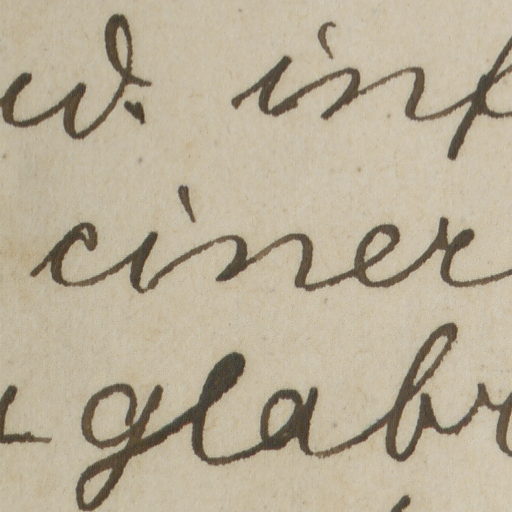 inf
ciner
glabr